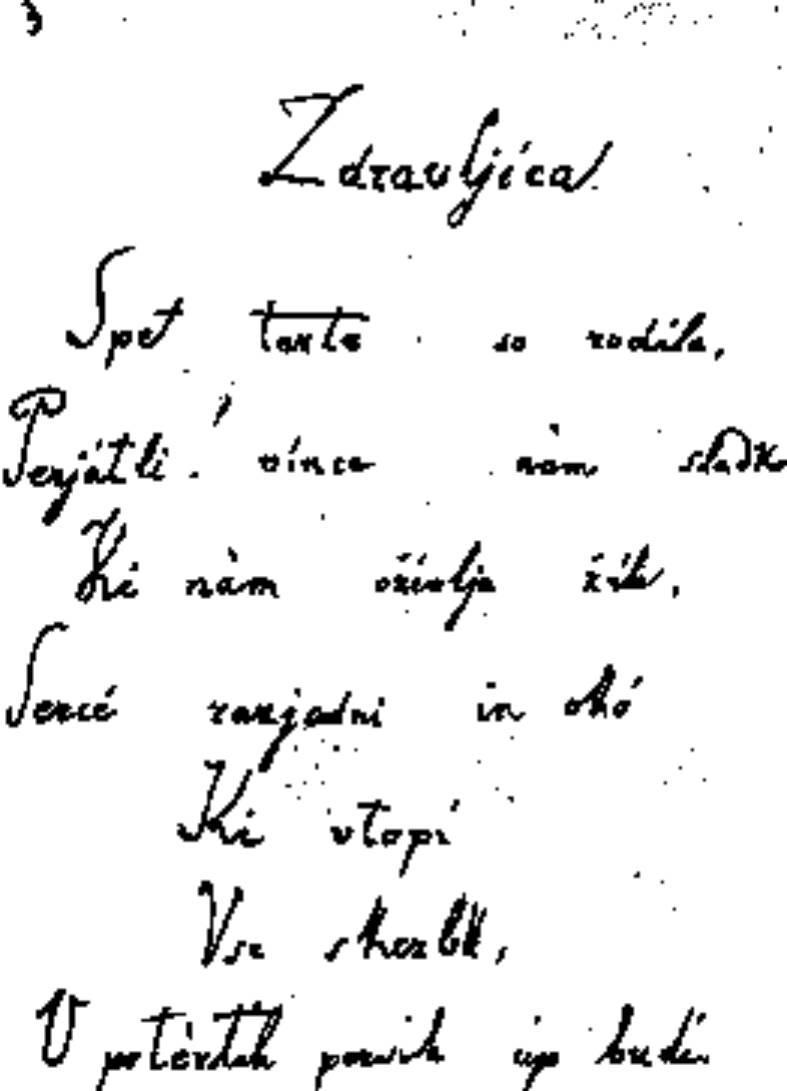 Zdravljica
Spet terte so rodile,
Perjátli! vince nàm sladko
Ki nàm oživlja žile,
Sercé razjasni in okó
Ki vtopí
Vse skerbí,
V potèrtih persih úp budí.